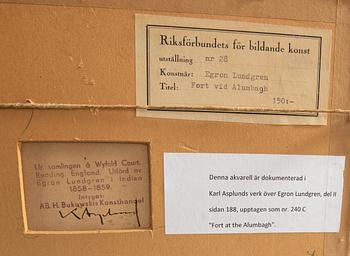 Riksförbundets för bildande konst
utställning nr 28
Konstnär: Egron Lundgren
Titel: Fort vid Alumbagh
150:-
Ur samlingen å Wyfold Court.
Reading. England. Utförd av
Egron Lundgren i Indien
1858-1859.
Intygas:
A.B. H. Bukowskis Konsthandel
Denna akvarell är dokumenterad i
Karl Asplunds verk över Egron Lundgren, del II
sidan 188, upptagen som nr. 240 C
"Fort at the Alumbagh".